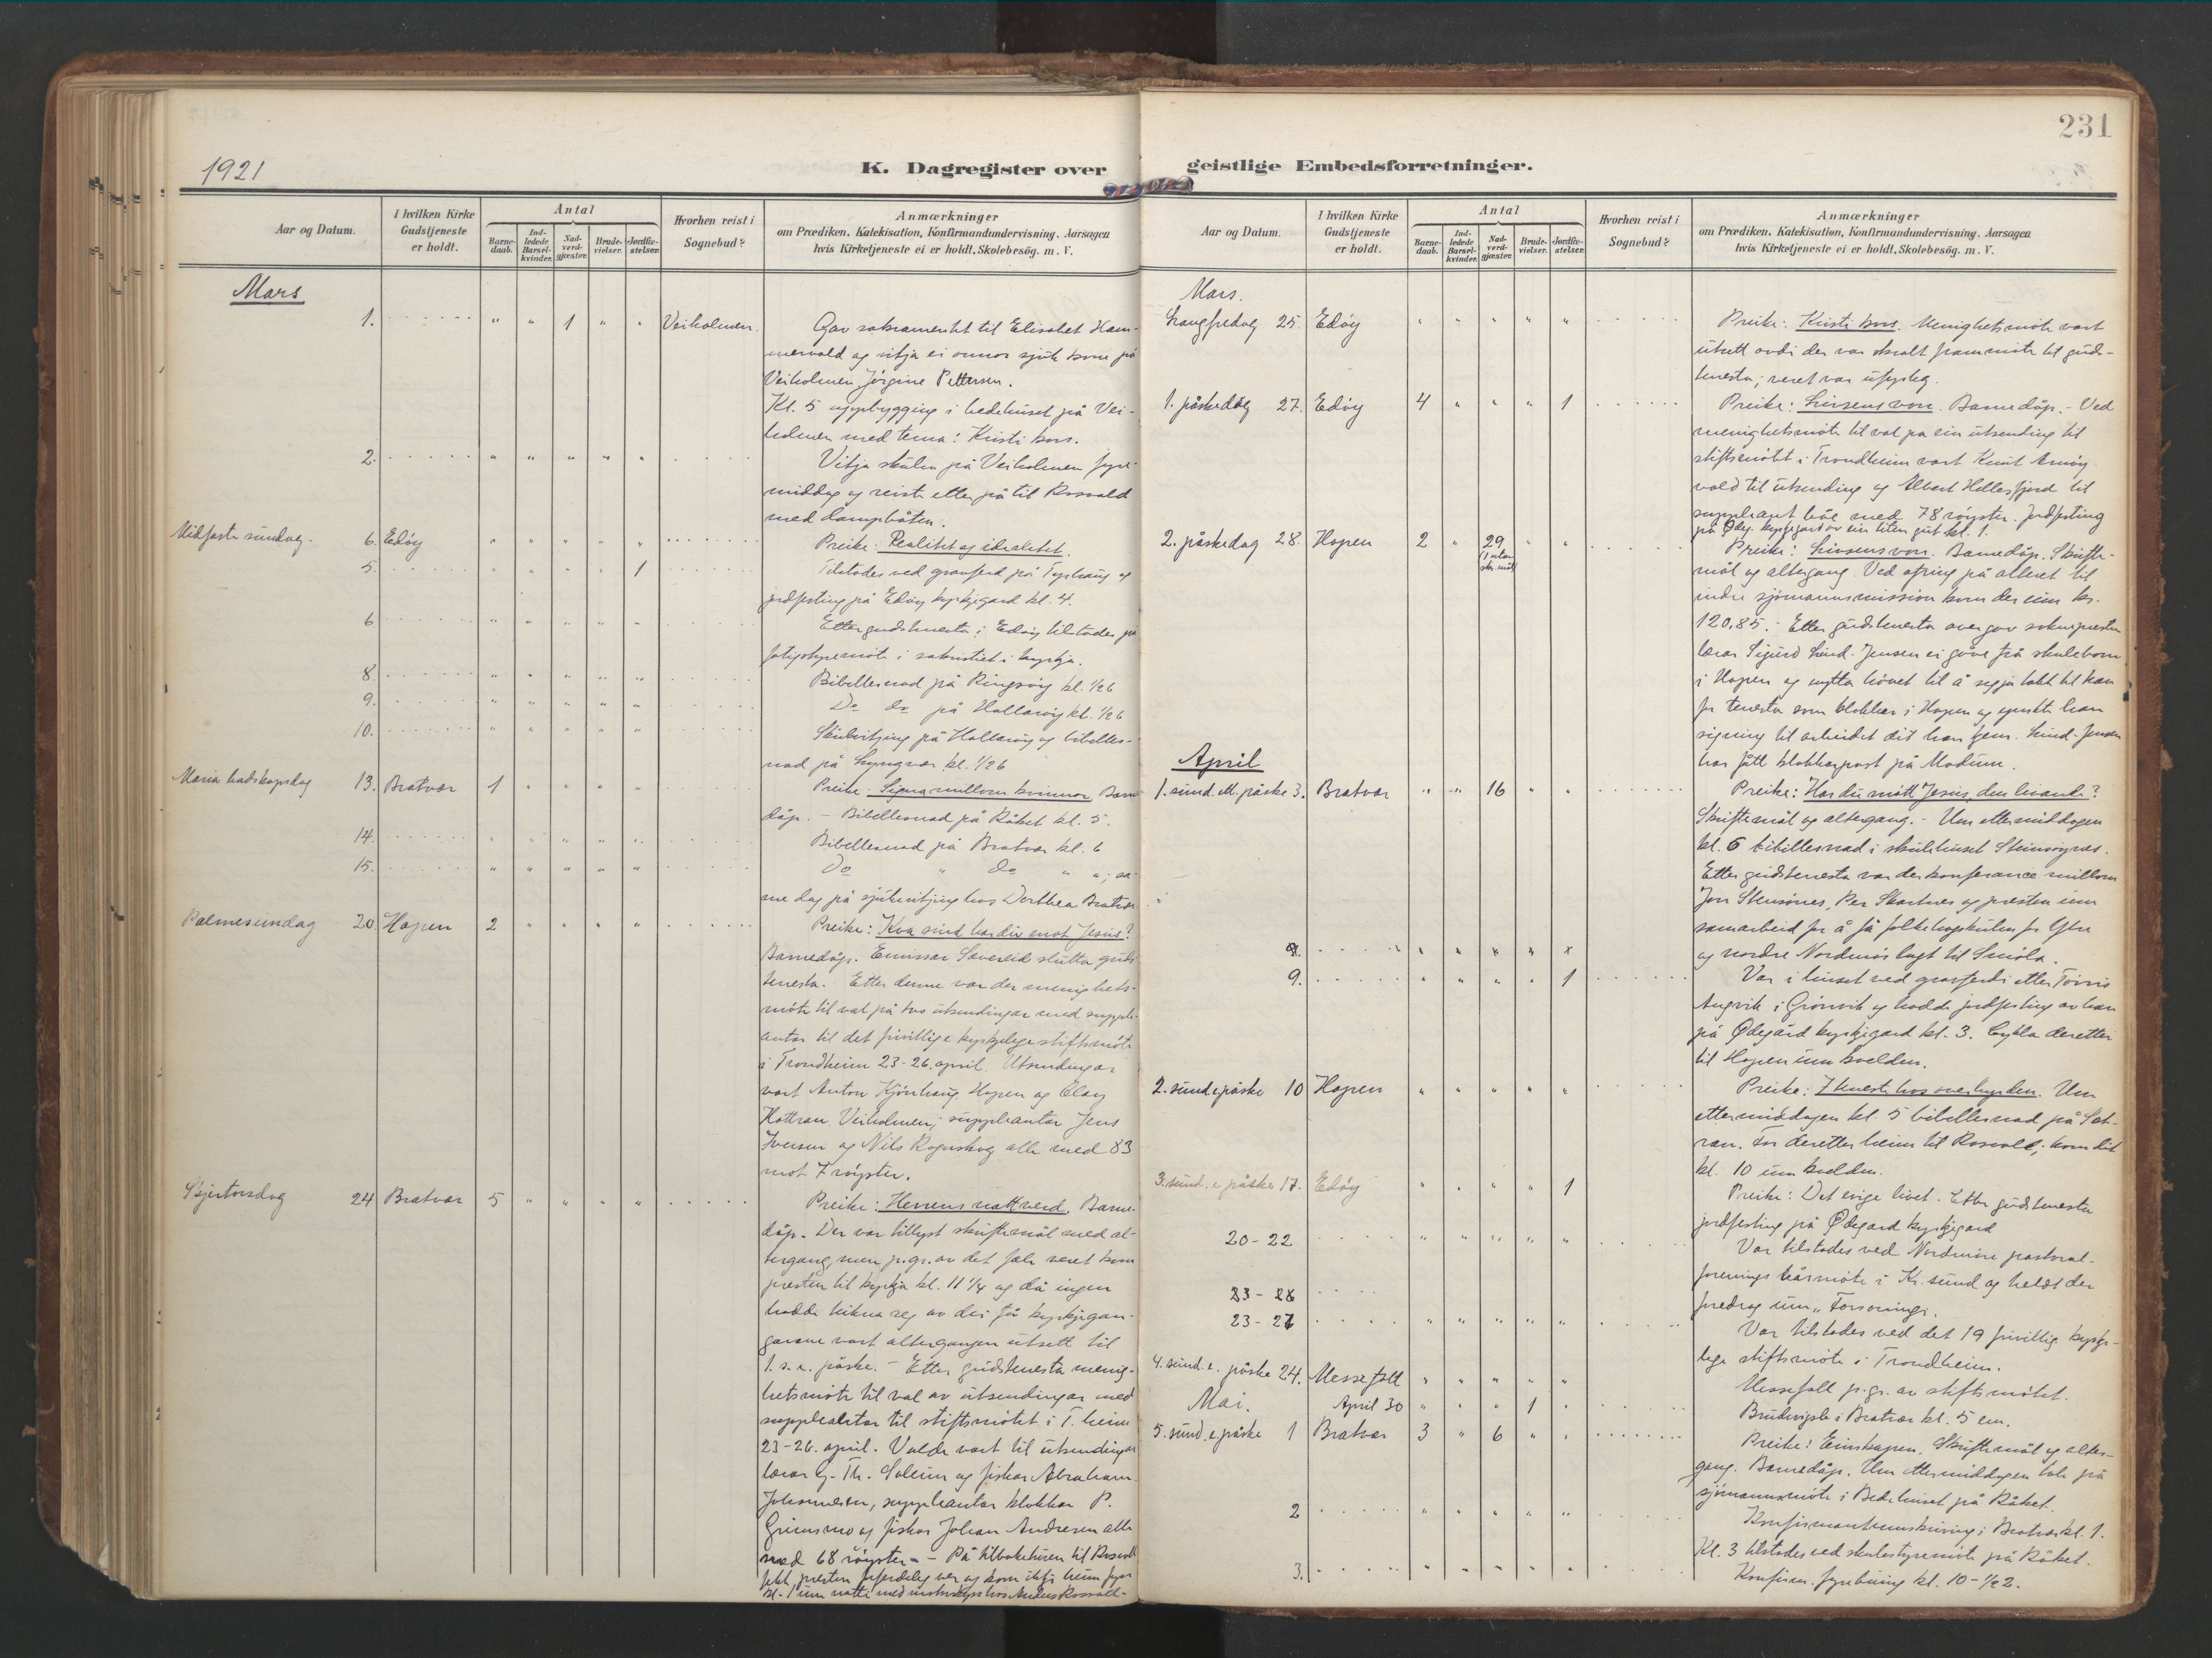 1921
K. Dagregister over
Aar og Datum.
I hvilken Kirke Gudstjeneste er holdt.
Antal
Barnedaab.
Indledede Barselkvinder.
Nadverdgjæster.
Brudevielser.
Jordfæstelser.
Hvorhen reist i Sognebud?
Anmærkninger
om Prædiken, Katekisation, Konfirmandundervisning, Aarsagen
hvis Kirketjeneste ei er holdt, Skolebesøg. m. V.
Mars
1. " " 1 " " Veiholmen. Gav sakramentet til Elisabet Ham-
mervold og vitja ei onnor sjuk kone på
Veiholmen Jörgine Pettersen.
Kl. 5 uppbygging i bedehuset på Vei-
holmen med tema: Kristi kors.
2. " " " " " Vitja skulen på Veiholmen fyre-
middag og reiste etter på til Rosvold
med dampbåten.
Midfaste sundag. 6. Edöy " " " " " Preike: Realitet og idealitet.
5. " " " " 1 Tilstades ved gravferd på Tyrhaug og
jordfesting på Edöy kyrkjegard kl. 4.
6 " " " " " Etter gudstenesta i Edöy tilstades på
i sakristiet i kyrkja.
8. " " " " " Bibellesnad på Ringsöy kl. 1/2 6
9. " " " " " Do do på Hallaröy kl. 1/2 6
10. " " " " " Skulvitjing på Hallaröy og bibelles-
nad på Lyngvær kl. 1/2 6
Maria bodskapsdag 13. Bratvær 1 " " " " Preike: Signa millom kvinnor. Barne-
dåp. - Bibellesnad på Råket kl. 5.
14. " " " " " Bibellesnad på Bratvær kl. 6
15. " " " " " Do " do " "; sa-
me dag på sjukevitjing hos Dorthea Bratvær
Palmesundag 20. Hopen 2 " " " " Preike: Kva sind har du mot Jesus?
Barnedåp. Emissær Savereid slutta guds-
tenesta. Etter denne var der menighets-
möte til val på tvo utsendingar med supple-
antar til det frivillige kyrkjelege stiftsmöte
i Trondheim 23-26. april. Utsendingar
vart Anton Kjönhaug, Hopen og Olav
Hattran, Veiholmen; suppleantar Jens
Iversen og Nils Rognskog alle med 83
mot 7 röyster.
Skjertorsdag 24 Bratvær 5 " " " " Preike: Herrens nattverd. Barne-
dåp. Der var tillyst skriftemål med al-
tergang, men p.gr. av det fæle veret kom
presten til kyrkja kl. 11 1/4 og då ingen
hadde teikna seg av dei få kyrkjegan-
garane vart altergangen utsett til
1. s. e. påske. - Etter gudstenesta menig-
hetsmöte til val av utsendingar med
suppleantar til stiftsmötet i T.heim
23-26. april. Valde vart til utsendingar
lærar G. Th. Soleim og fiskar Abraham
Johannesen, suppleantar klokkar P.
Grimsmo og fiskar Johan Andresen alle
med 68 röyster. - På tilbaketuren til Rosvold
fekk presten ver og kom ikkje heim fyrr
kl. 1 um natti med hos Anders Rosvold.
231
geistlige Embedsforretninger.
Aar og Datum.
I hvilken Kirke Gudstjeneste er holdt.
Antal
Barnedaab.
Indledede Barselkvinder.
Nadverdgjæster.
Brudevielser.
Jordfæstelser.
Hvorhen reist i Sognebud?
Anmærkninger
om Prædiken, Katekisation, Konfirmandundervisning, Aarsagen
hvis Kirketjeneste ei er holdt, Skolebesøg. m. V.
Mars.
Langfredag 25. Edöy " " " " " Preike: Kristi kors. Menighetsmöte vart
utsett avdi der var skralt frammöte til guds-
tenesta; veret var ufysleg.
1. påskedag 27. Edöy 4 " " " 1 Preike: Livsens von. Barnedåp. - Ved
menighetsmöte til val på ein utsending til
stiftsmötet i Trondheim vart Knut Arnöy
vald til utsending og Albert Hellesfjord til
suppleant båe med 78 röyster. Jordfesting
på Ödeg. kyrkjegard av ein liten gut kl. 1.
2. påskedag 28. Hopen 2 " 29 (1 utan skr.mål) " " Preike: Livsens von. Barnedåp. Skrifte-
mål og altergang. Ved ofring på altaret til
indre sjömannsmission kom der inn kr.
120.85. - Etter gudstenesta overgav soknepresten
lærar Sigurd Lind-Jensen ei gåve frå skuleborn
i Hopen og nytta hövet til å segja takk til han
for tenesta som klokkar i Hopen og ynskte han
signing til arbeidet dit han fer. Lind-Jensen
har fått klokkarpost på Modum.
April
1. sund. ett. påske 3. Bratvær " " 16 " " Preike: Har du mött Jesus, den livande?
Skriftemål og altergang. - Um ettermiddagen
kl. 6 bibellesnad i skulehuset Steinsöynes.
Etter gudstenesta var der konferance millom
Jon Steinsönes, Per Skartnes og presten um
samarbeid for å få folkehögskulen for Ytre
og nordre Nordmör lagt til Smöla.
9. " " " " 1 Var i huset ved gravferdi etter
Angvik i Grönvik og hadde jordfesting av han
på Ödegård kyrkjegard kl. 3. Cykla deretter
til Hopen um kvelden.
2. sund. e. påske 10 Hopen " " " " " Preike: I teneste hos overhyrden. Um
ettermiddagen kl. 5 bibellesnad på Set-
ran. For deretter heim til Rosvold; kom dit
kl. 10 um kvelden.
3. sund. e. påske 17. Edöy " " " " 1 Preike: Det evige livet. Etter gudstenesta
jordfesting på Ödegard kyrkjegard
20-22 " " " " " Var tilstades ved Nordmöre pastoral-
forenings vårmöte i Kr.sund og heldt der
foredrag um "Forsoningi.
23 - 26
23 - 27 " " " " " Var tilstades ved det 19 frivillig kyrkje-
lege stiftsmöte i Trondheim.
4. sund. e. påske 24. Messefall " " " " " Messefall p.gr. av stiftsmötet.
Mai. April 30 " " " 1 " Brudevigsle i Bratvær kl. 5 em.
5. sund. e. påske 1 Bratvær 3 " 6 " " Preike: Einskapen. Skriftemål og alter-
gang. Barnedåp. Um ettermiddagen tale på
sjömannsmöte i Bedehuset på Råket.
2 " " " " " Konfirmantinnskriving i Bratvær kl. 1.
Kl. 3 tilstades ved skulestyremöte på Råket.
3. " " " " " Konfirm. fyrebuing kl. 10-1/2 2.